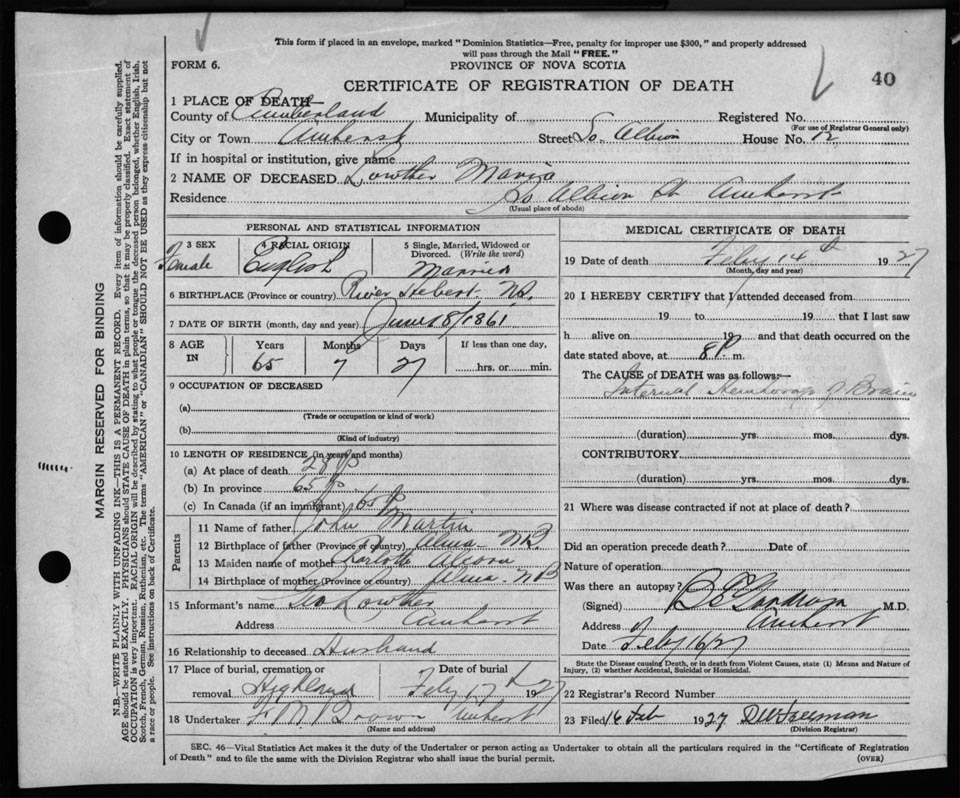 This form if placed in an envelope, marked "Dominion Statistics—Free, penalty for improper use $300," and properly addressed
will pass through the Mail "FREE."
FORM 6.
PROVINCE OF NOVA SCOTIA
40
CERTIFICATE OF REGISTRATION OF DEATH
1 PLACE OF DEATH—
County of Cumberland Municipality of Registered No.
(For use of Registrar General only)
City or Town Amherst Street So. Albion House No. 12
If in hospital or institution, give name
2 NAME OF DECEASED Lowther Maria
Residence So Albion St Amherst
(Usual place of abode)
PERSONAL AND STATISTICAL INFORMATION
3 SEX Female
4 RACIAL ORIGIN English
5 Single, Married, Widowed or Divorced. (Write the word) Married
6 BIRTHPLACE (Province or country) River Hebert. N.S.
7 DATE OF BIRTH (month, day and year) June 18/1861
8 AGE IN Years Months Days If less than one day,
65 7 27 hrs. or min.
9 OCCUPATION OF DECEASED
(a)
(Trade or occupation or kind of work)
(b)
(Kind of industry)
10 LENGTH OF RESIDENCE (in years and months)
(a) At place of death 28
(b) In province 65
(c) In Canada (if an immigrant) 65
Parents
11 Name of father John Martin
12 Birthplace of father (Province or country) Alma N.B.
13 Maiden name of mother
14 Birthplace of mother (Province or country) Alma N B
15 Informant's name Geo Lowther
Address Amherst
16 Relationship to deceased Husband
17 Place of burial, cremation or removal Highland
Date of burial Feby 17th 1927
18 Undertaker F. M. Brown Amherst
(Name and address)
MEDICAL CERTIFICATE OF DEATH
19 Date of death Feby 14th 1927
(Month, day and year)
20 I HEREBY CERTIFY that I attended deceased from
19 to 19 that I last saw
h alive on 19 and that death occurred on the
date stated above, at 8 P. m.
The CAUSE of DEATH was as follows:—
Internal Hemorage of Brain
(duration) yrs. mos. dys.
CONTRIBUTORY
(duration) yrs. mos. dys.
21 Where was disease contracted if not at place of death?
Did an operation precede death? Date of
Nature of operation
Was there an autopsy? no
(Signed) M.D.
Address Amherst
Date Feby 16/27
State the Disease causing Death, or in death from Violent Causes, state (1) Means and Nature of
Injury, (2) whether Accidental, Suicidal or Homicidal.
22 Registrar's Record Number
23 Filed 16 Feb 1927 Freeman
(Division Registrar)
SEC. 46—Vital Statistics Act makes it the duty of the Undertaker or person acting as Undertaker to obtain all the particulars required in the "Certificate of Registration
of Death" and to file the same with the Division Registrar who shall issue the burial permit.
(OVER)
MARGIN RESERVED FOR BINDING
N.B.—WRITE PLAINLY WITH UNFADING INK—THIS IS A PERMANENT RECORD. Every item of information should be carefully supplied.
AGE should be stated EXACTLY. PHYSICIANS should STATE CAUSE OF DEATH in plain terms, so that it may be properly classified. Exact statement of
OCCUPATION is very important. RACIAL ORIGIN will be described by stating to what people or tongue the deceased person belonged, whether English, Irish,
Scotch, French, German, Russian, Ruthenian, etc. The terms "AMERICAN" or "CANADIAN" SHOULD NOT BE USED as they express citizenship but not
a race or people. See instructions on back of Certificate.